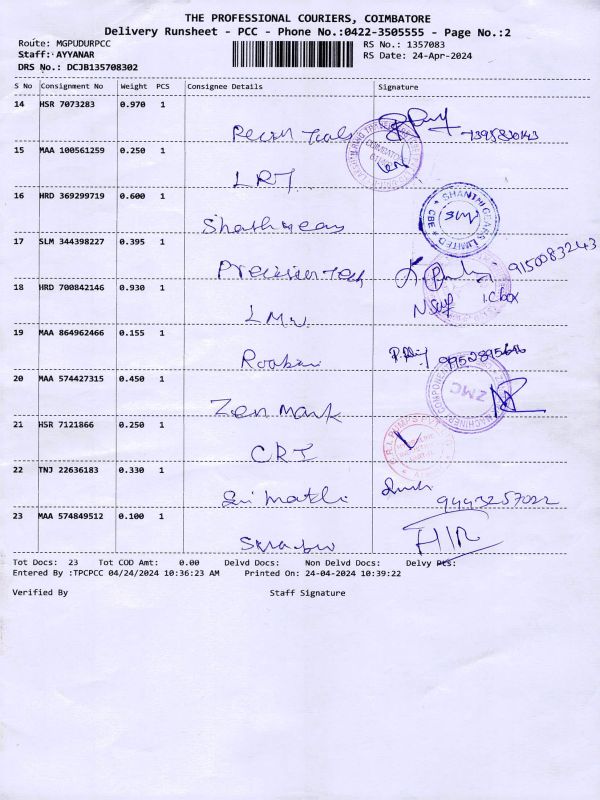 THE PROFESSIONAL COURIERS, COIMBATORE
Delivery Runsheet - PCC - Phone No.:0422-3505555 - Page No.:2
Route: MGPUDURPCC RS No.: 1357083
Staff: AYYANAR RS Date: 24-Apr-2024
DRS No.: DCJB135708302
S No Consignment No Weight PCS Consignee Details Signature
14 HSR 7073283 0.970 1
15 MAA 100561259 0.250 1
LRT
16 HRD 369299719 0.600 1
SHANTHI GEARS LIMITED CBE
17 SLM 344398227 0.395 1
Precision Tech 9150083243
18 HRD 700842146 0.930 1
LMW
19 MAA 864962466 0.155 1
20 MAA 574427315 0.450 1
Zen Mark ZMC
21 HSR 7121866 0.250 1
CRI
22 TNJ 22636183 0.330 1
9443257022
23 MAA 574849512 0.100 1
Tot Docs: 23 Tot COD Amt: 0.00 Delvd Docs: Non Delvd Docs: Delvy Pcs:
Entered By :TPCPCC 04/24/2024 10:36:23 AM Printed On: 24-04-2024 10:39:22
Verified By Staff Signature